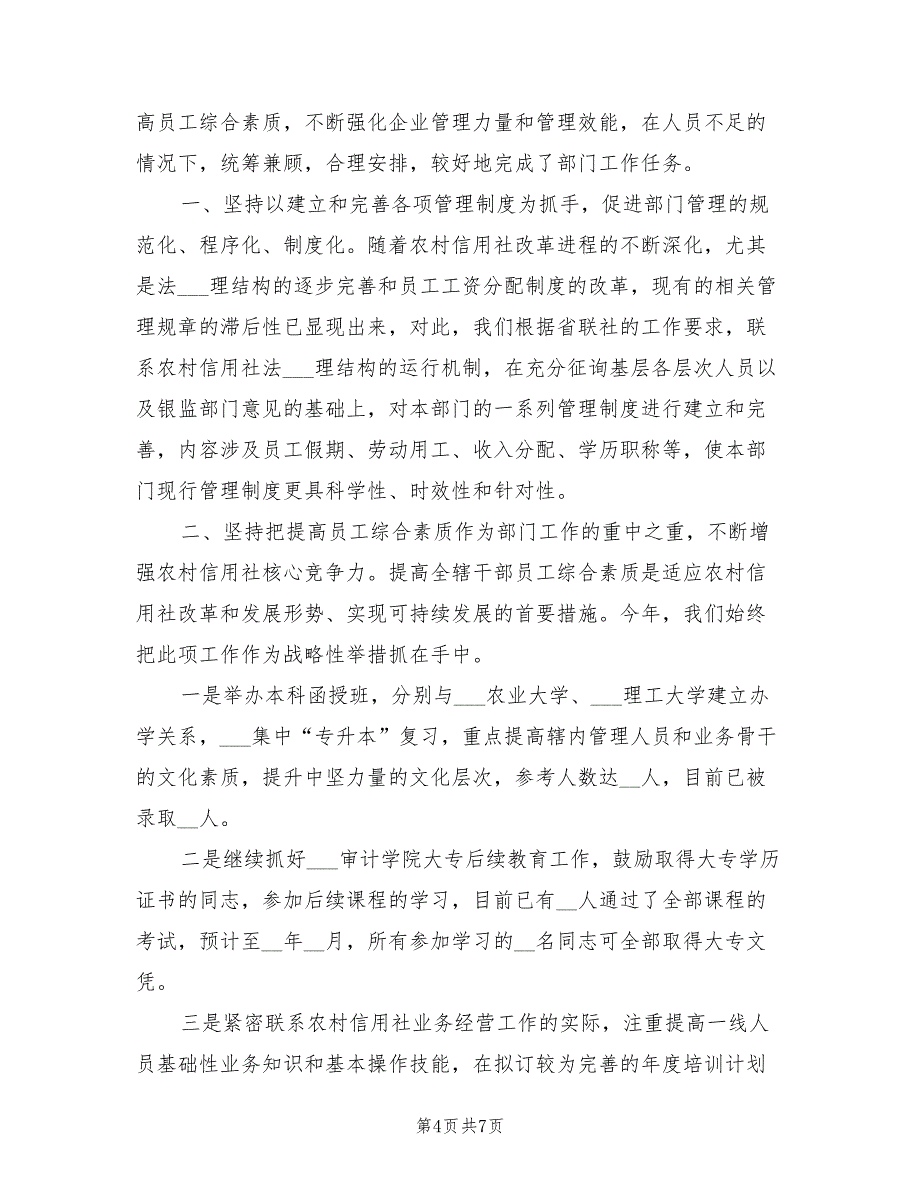 高员工综合素质，不断强化企业管理力量和管理效能，在人员不足的
情况下，统筹兼顾，合理安排，较好地完成了部门工作任务。
一、坚持以建立和完善各项管理制度为抓手，促进部门管理的规
范化、程序化、制度化。随着农村信用社改革进程的不断深化，尤其
是法___理结构的逐步完善和员工工资分配制度的改革，现有的相关管
理规章的滞后性已显现出来，对此，我们根据省联社的工作要求，联
系农村信用社法___理结构的运行机制，在充分征询基层各层次人员以
及银监部门意见的基础上，对本部门的一系列管理制度进行建立和完
善，内容涉及员工假期、劳动用工、收入分配、学历职称等，使本部
门现行管理制度更具科学性、时效性和针对性。
二、坚持把提高员工综合素质作为部门工作的重中之重，不断增
强农村信用社核心竞争力。提高全辖干部员工综合素质是适应农村信
用社改革和发展形势、实现可持续发展的首要措施。今年，我们始终
把此项工作作为战略性举措抓在手中。
一是举办本科函授班，分别与___农业大学、___理工大学建立办
学关系，___集中“专升本”复习，重点提高辖内管理人员和业务骨干
的文化素质，提升中坚力量的文化层次，参考人数达__人，目前已被
录取__人。
二是继续抓好___审计学院大专后续教育工作，鼓励取得大专学历
证书的同志，参加后续课程的学习，目前已有__人通过了全部课程的
考试，预计至__年__月，所有参加学习的__名同志可全部取得大专文
凭。
三是紧密联系农村信用社业务经营工作的实际，注重提高一线人
员基础性业务知识和基本操作技能，在拟订较为完善的年度培训计划
第4页共7页